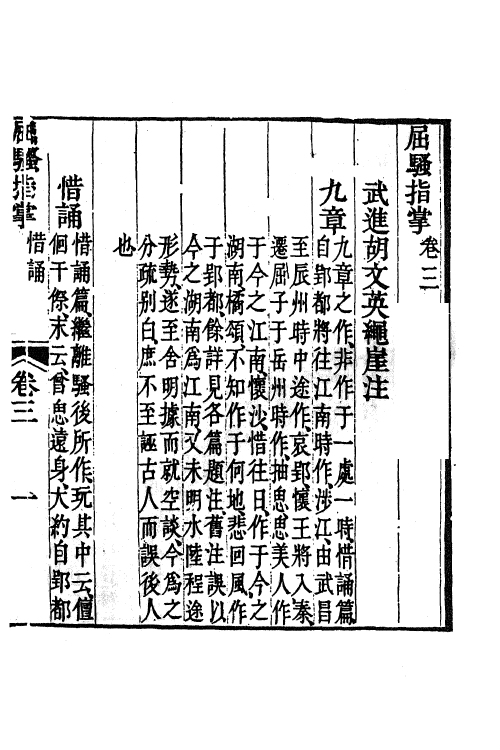 屈騷指掌 卷三
武進胡文英繩崖注
九章
九章之作、非作于一處一時、惜誦篇、
自郢都將往江南時作、涉江、由武昌
至辰州時中途作、哀郢、懷王將入秦、
遷屈子于岳州時作、抽思、思美人、作
于今之江南、懷沙、惜往日、作于今之
湖南、橘頌、不知作于何地、悲回風、作
于郢都、餘詳見各篇題注、舊注誤以
今之湖南爲江南、又未明水陸程途
形勢、遂至舍明據而就空談、今爲之
分疏別白、庶不至誣古人而誤後人
也
惜誦
惜誦篇、繼離騷後所作、玩其中云、儃
佪干傺、末云、曾思遠身、大約自郢都
屈騷指掌 惜誦 卷三 一